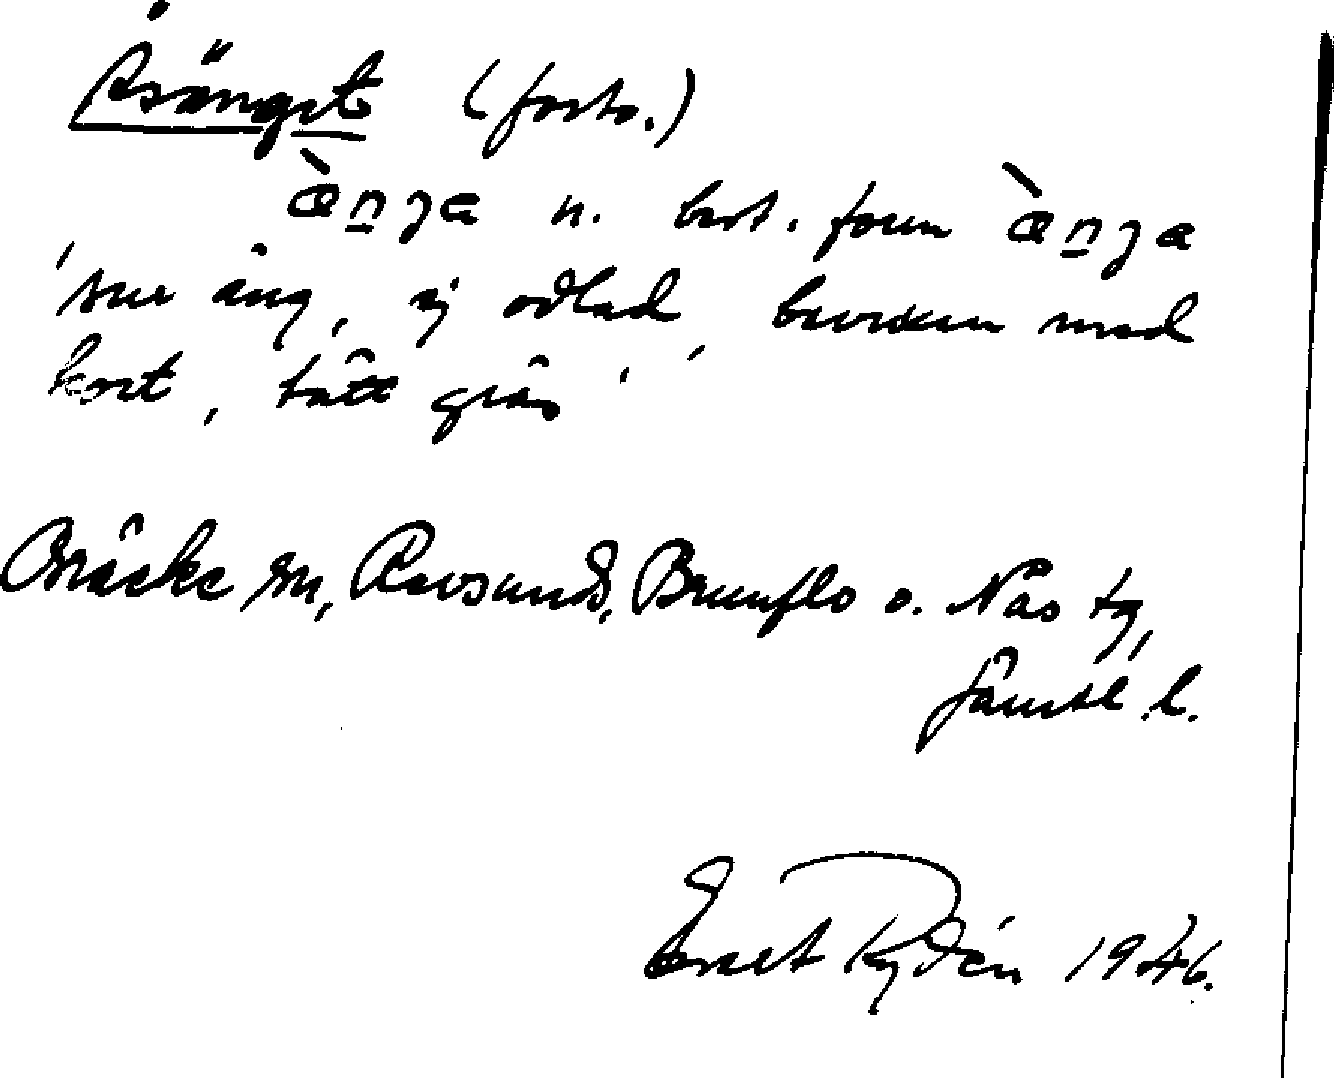 Åsänget (forts.)
æ̀nga n. best. form æ̀nga
'sur äng, ej odlad, bevuxen med
kort, tätt gräs'
Bräcke sn, Revsunds, Brunflo o. Näs tg,
Jämtl. l.
Ernst Rydén 1946.